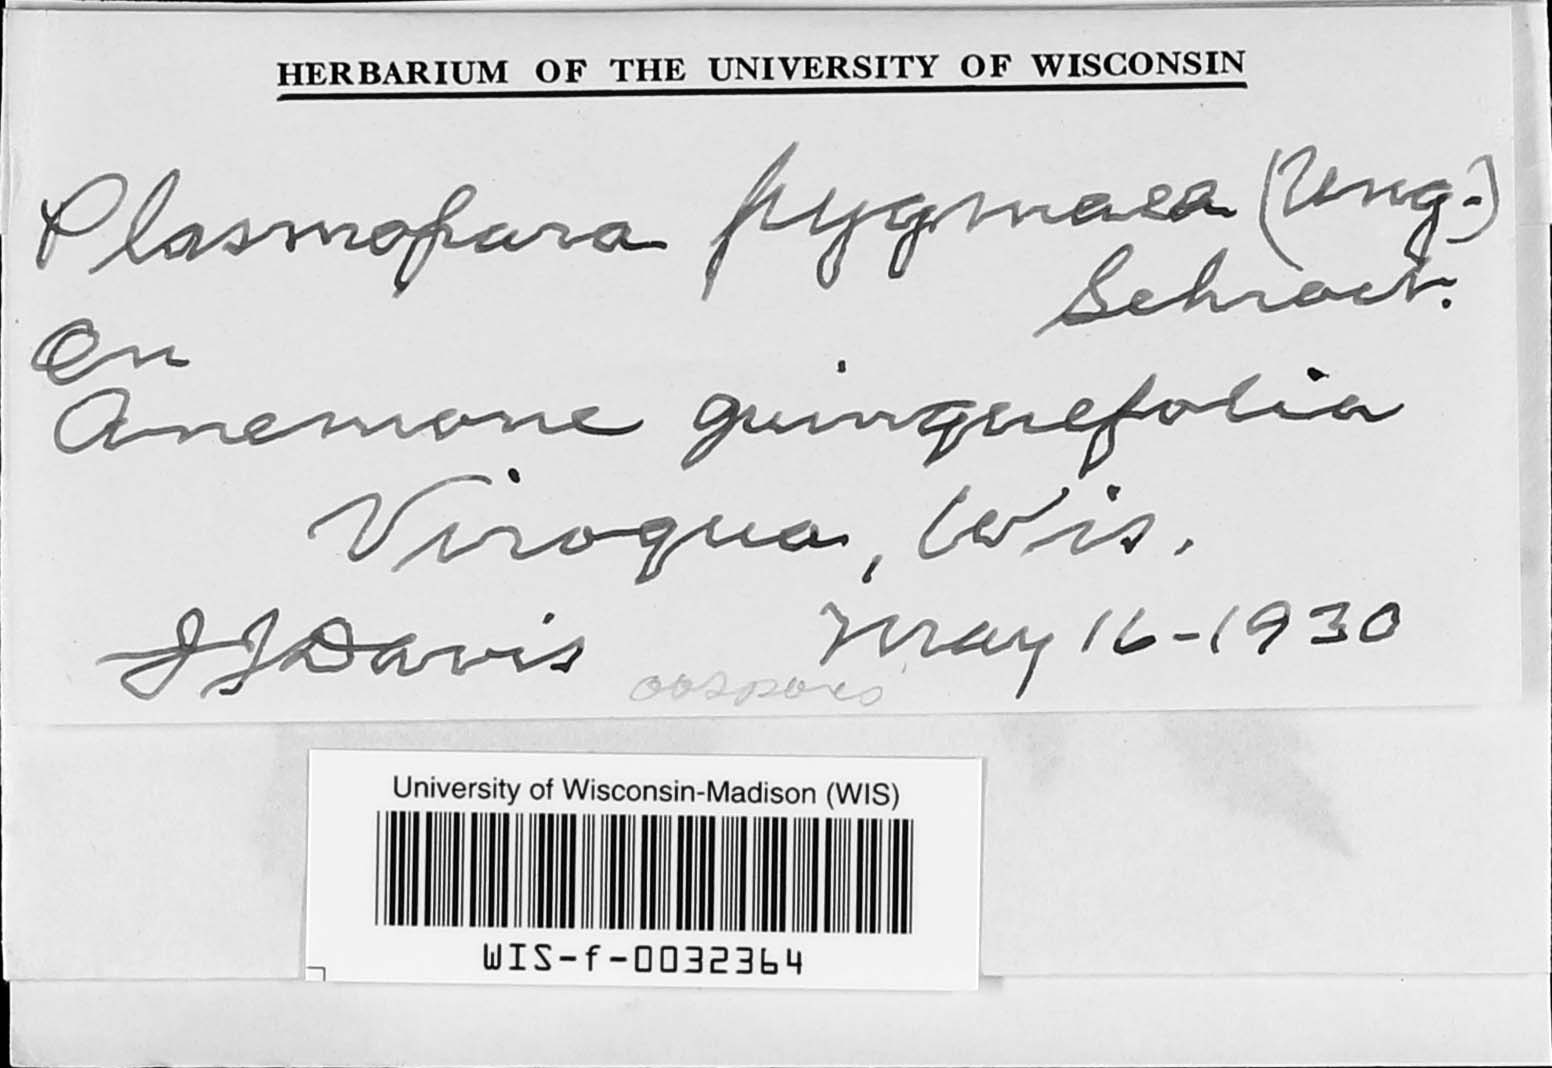 HERBARIUM OF THE UNIVERSITY OF WISCONSIN
Plasmopara pygmaea (Ung.)
Schroet.
On
Anemone quinquefolia
Viroqua, Wis.
JJDavis May 16-1930
oospores
University of Wisconsin-Madison (WIS)
WIS-f-0032364